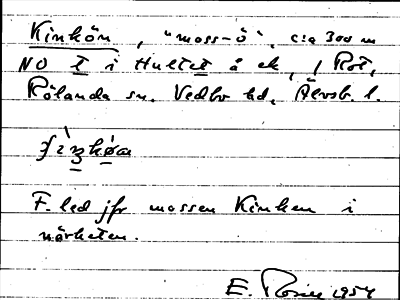 Kinkön, "moss-ö", c:a 300 m
NO t i Hultet å ek, / Rot,
Rölanda sn. Vedbo hd, Älvsb. l.
F. led jfr mossen Kinken i
närheten.
E. 1954